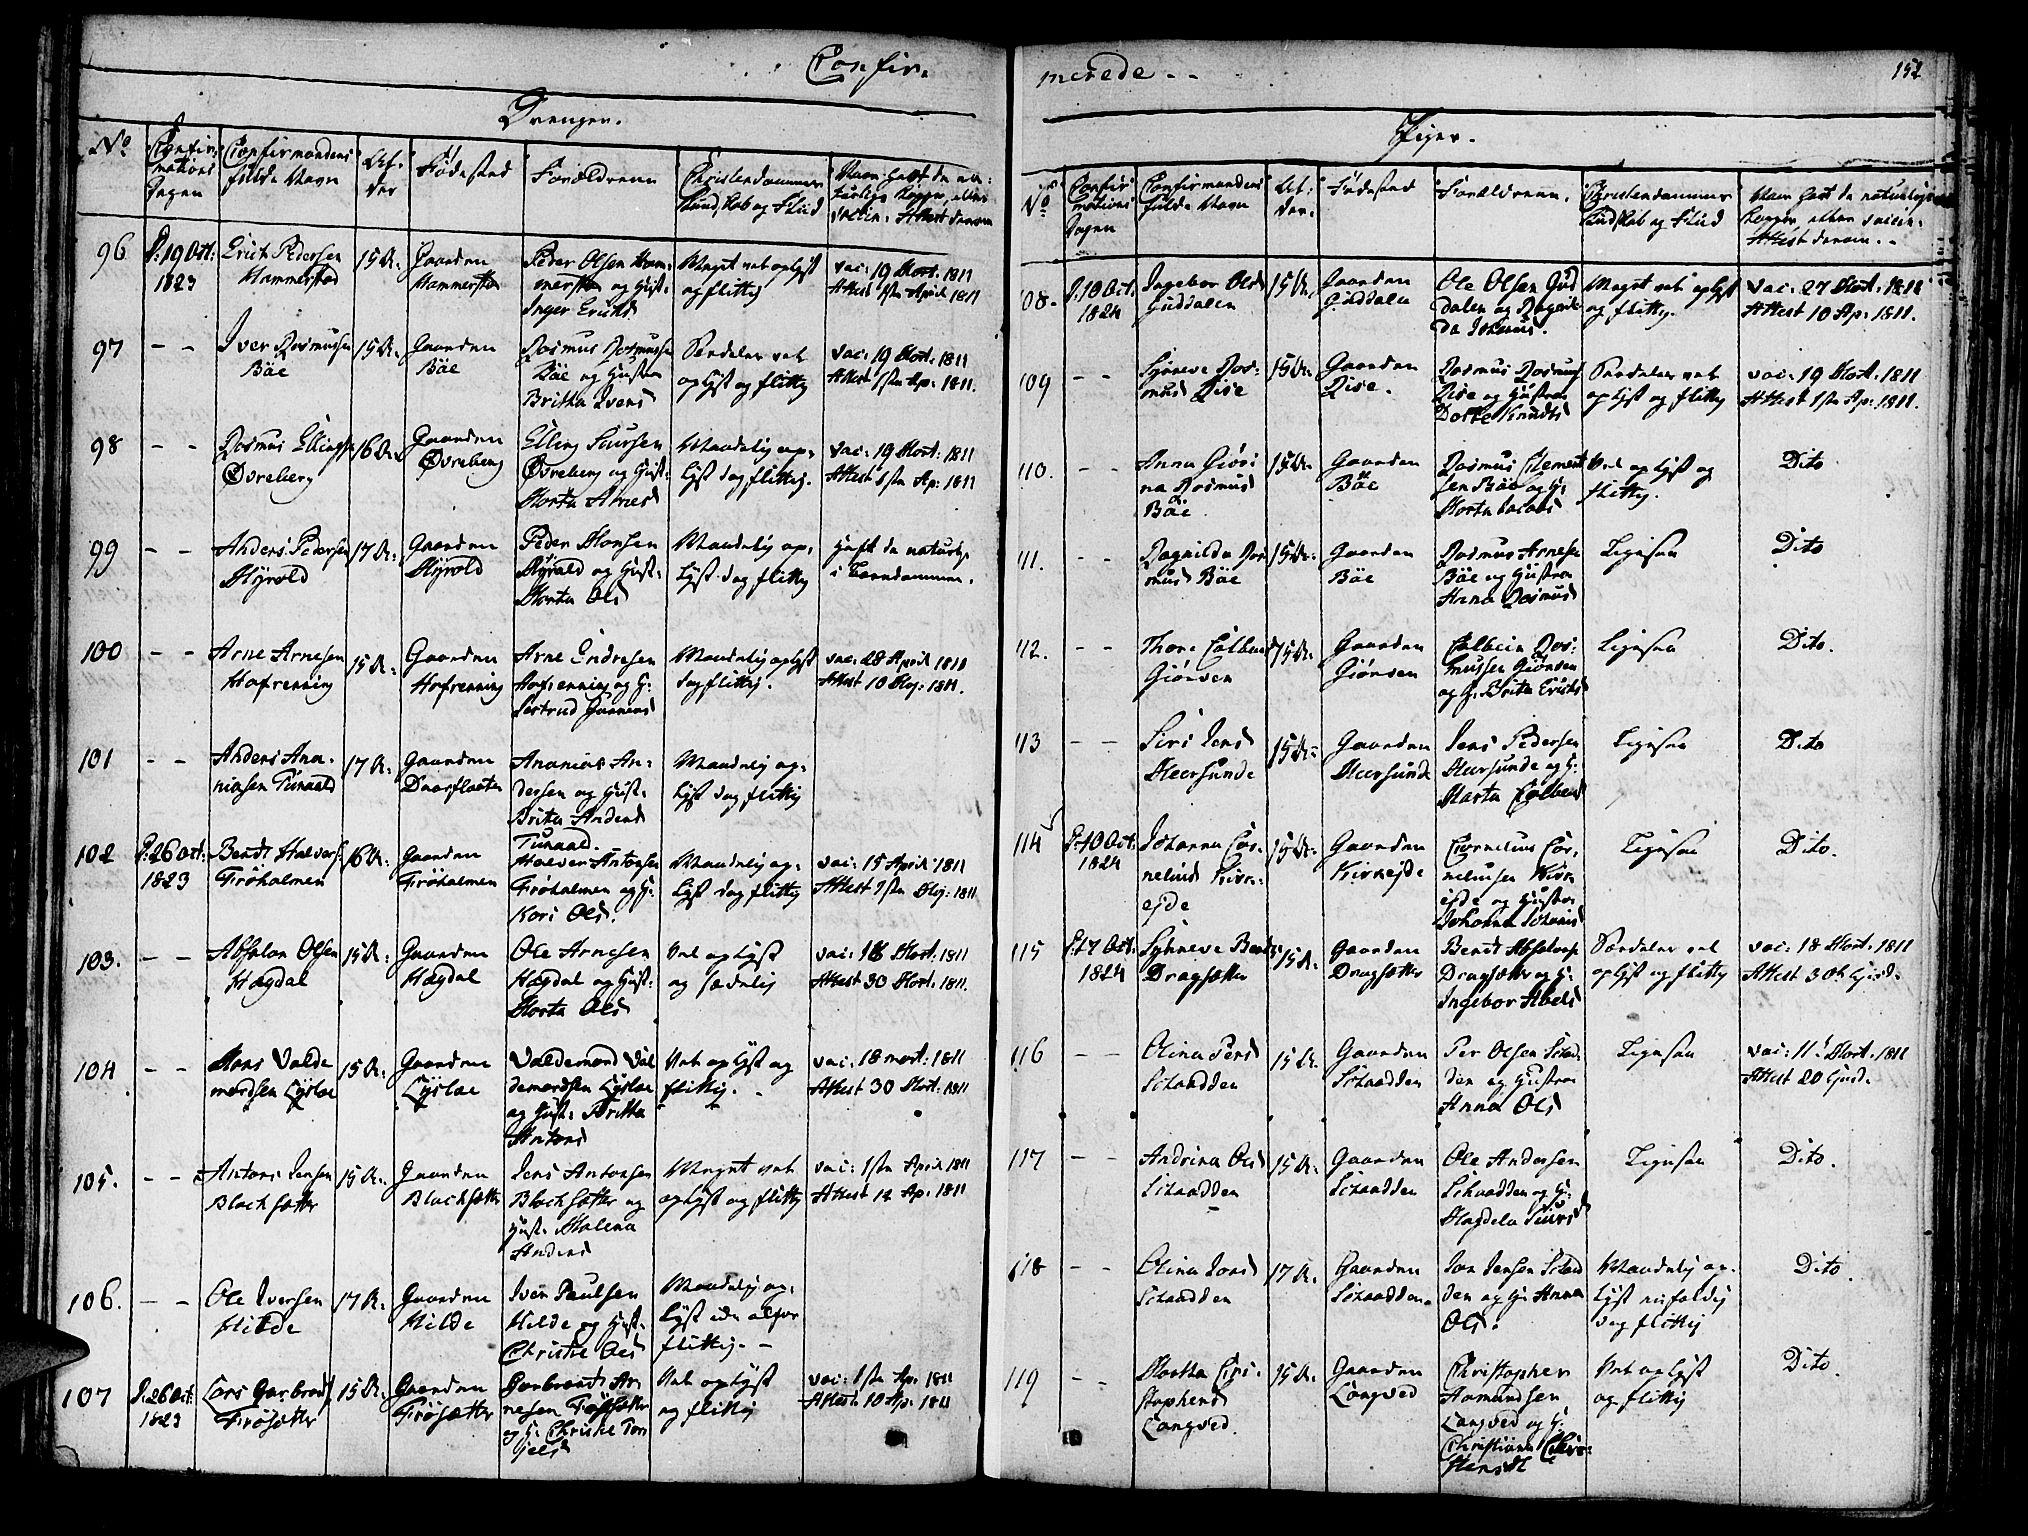 Confir-
merede --
152
Drenger.
No
Confir-
mations
Dagen
Confirmandens
fulde Navn
Al-
der
Fødested
Forældrene
Christendommens
Kundskab og Flid
96
D: 19 Oct:
1823
Erich Pedersen
Hammerstad
15 A:
Gaarden
Hammerstad
Peder Olsen Ham-
merstad og Hust:
Inger Erichsd
Meget vel oplyst
og flittig
vac: 19 Mart: 1811
Attest 1ste April 1811
97
- -
Iver Rasmussen
Böe
15 A:
Gaarden
Böe
Rasmus Rasmussen
Böe og Hustroe
Britha Ivers
Særdeles vel
oplyst og flittig
vac: 19 Mart: 1811
Attest 1ste Ap: 1811.
98
- -
Rasmus Ellingsen
Øvreberg
16 A:
Gaarden
Øvreberg
Elling Siursen
Øvreberg og Hust:
Marta Arnesd
Maadelig op-
lyst dog flittig.
vac: 19 Mart: 1811
Attest 1ste Ap: 1811
99
- -
Anders Pedersen
Myrold
17 A:
Gaarden
Myrold
Peder Monsen
Myrold og Hust:
Marta Olsd
Maadelig op-
lyst dog flittig
havt de naturlige
i Barndommen.
100
- -
Arne Arnesen
Hafrenning
15 A:
Gaarden
Hafrenning
Arne Endresen
Hafrenning og H:
Maadelig oplyst
dog flittig.
vac: 28 April 1811
Attest 10 Maj: 1811.
101
- -
Anders Ana-
niasen Tunaald
17 A:
Gaarden
Ananias An-
dersen og Hust:
Brita Anders
Tunaald.
Maadelig op-
lyst dog flittig
102
D: 26 Oct:
1823
Bendt Halvors:
Frøholmen
16 A:
Gaarden
Frøholmen
Halvor Antonsen
Frøholmen og H:
Kari Olsd.
Maadelig op-
lyst dog flittig
vac: 15 April 1811
Attest 1ste Maj: 1811
103.
- -
Absalon Olsen
Hægdal
15 A:
Gaarden
Hægdal
Ole Arnesen
Hægdal og Hust:
Marta Olsd
Vel oplyst
og sædelig
vac: 18 Mart: 1811
Attest 30 Mart: 1811.
104
- -
Mons Valde
mordsen Lysloe
15 A:
Gaarden
Lysloe
Valdemord Val
demordsen Lysloe
og Hust: Britha
Antonsd
Vel oplyst og
flittig. -
vac: 18 mart: 1811
Attest 30 Mart: 1811
105.
- -
Antons Jensen
Blachsætter
15 A:
Gaarden
Blachsætter
Jens Antonsen
Blachsætter og
Hust: Malena
Andersd
Meget vel
oplyst og flittig
vac: 1ste April 1811
Attest 12 Ap: 1811
106.
- -
Ole Iversen
Hilde
17 A:
Gaarden
Hilde
Iver Paulsen
Hilde og Hust:
Christie Olsd
Maadelig op-
lyst
flittig. -
107
D: 26 Oct:
1823
Lars Garbrands
Frøsætter
15 A:
Gaarden
Frøsætter
Garbrand Ar
nesen Frøsætter
og H: Christie Tor
gelsd
Vel oplyst
og flittig
vac: 1ste Ap: 1811
Attest 10 Ap: 1811
Piger.
No
Confir
mations
Dagen
Confirmandens
fulde Navn
Al-
der.
Fødested
Forældrene.
Christendommens
Kundskab og Flid
Naar havt de naturlige
Kopper eller vaccin:
Attest derom. -
108.
D: 10 Oct:
1824
Ingebor Olsd
Guddalen
15 A:
Gaarden
Guddalen
Ole Olsen Gud
dalen og Ragnil-
da
Meget vel oplyst
og flittig.
vac: 27 Mart: 1811
Attest 10 Ap: 1811.
109
- -
Synneve Ras-
musd Rise
15 A:
Gaarden
Rise.
Rasmus Rasmus
Rise og Hustroe
Dorte Knudsd
Særdeles vel
oplyst og flittig
vac: 19 Mart: 1811
Attest 1ste Ap: 1811.
110.
- -
Anna Giøri
na Rasmusd
Böe.
15 A:
Gaarden
Böe
Rasmus Clement
sen Böe og H:
Marta
Vel oplyst og
flittig.
Dito
111.
- -
Ragnilda Ras
musd Böe
15 A:
Gaarden
Böe
Rasmus Arnesen
Böe og Hustroe
Anna Rasmusd
Ligesaa
Dito
112.
- -
Thore Colbensd
Giørven
15 A:
Gaarden
Giørven
Colbein Ras-
mussen Giørven
og H: Brita Erichsd
Ligesaa
Dito.
113
- -
Siri Jensd
Marsunde
15 A:
Gaarden
Marsunde
Jens Pedersen
Marsunde og H:
Marta Colbensd
Ligesaa
Dito
114
D: 10 Oct:
1824
Johanna Cor-
neliusd Kirk-
ejde
15 A:
Gaarden
Kirkejde
Cornelius Cor-
neliusen Kirk-
ejde og Hustroe
Johanna
Ligesaa
Dito.
115
D: 17 Oct:
1824
Synneve Bendts
Dragsætter
15 A:
Gaarden
Dragsætter
Bendt Absalons
Dragsætter og H:
Ingebor Abelsd
Særdeles vel
oplyst og flittig
vac: 18 Mart: 1811
Attest 30te Ejusd.
116
- -
Olina Persd
Schaadden
15 A:
Gaarden
Schaadden
Per Olsen Schad
den og Hustroe
Anna Olsd
Ligesaa
vac: 11te Mart: 1811
Attest 20 Ejusd.
117
- -
Andrina Olsd
Schaadden
15 A:
Gaarden
Schaadden
Ole Andersen
Schaadden og H:
Magdela Siursd
Ligesaa
Dito.
118
- -
Olina Jonsd
Schaadden
17 A:
Gaarden
Schaadden.
Jon Jensen Schad
den og H: Anna
Olsd.
Maadelig op-
lyst enfoldig
dog flittig
Dito.
119
- -
Martha Chri-
stophersd
Langved.
15 A:
Gaarden
Langved
Christopher
Aamundsen
Langved og H:
Christiana Chri-
stensd
Vel oplyst
og flittig
Dito.